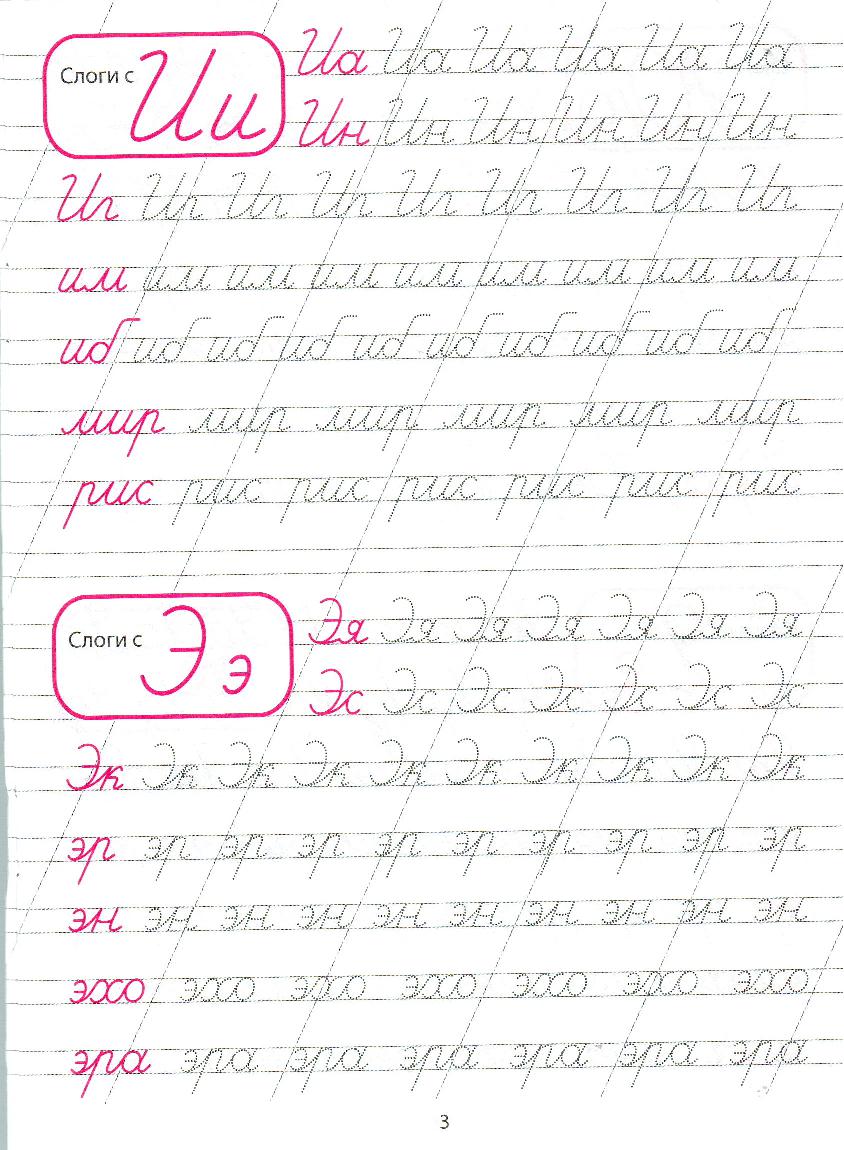 Слоги с И и
Иа Иа Иа Иа Иа Иа
Ин Ин Ин Ин Ин Ин
Иг Иг Иг Иг Иг Иг Иг Иг Иг
им им им им им им им им им
иб иб иб иб иб иб иб иб иб иб
мир мир мир мир мир мир
рис рис рис рис рис рис рис
Слоги с Э э
Эя Эя Эя Эя Эя Эя Эя
Эс Эс Эс Эс Эс Эс Эс
Эк Эк Эк Эк Эк Эк Эк Эк Эк Эк
эр эр эр эр эр эр эр эр эр эр
эн эн эн эн эн эн эн эн эн эн
эхо эхо эхо эхо эхо эхо эхо
эра эра эра эра эра эра эра
3